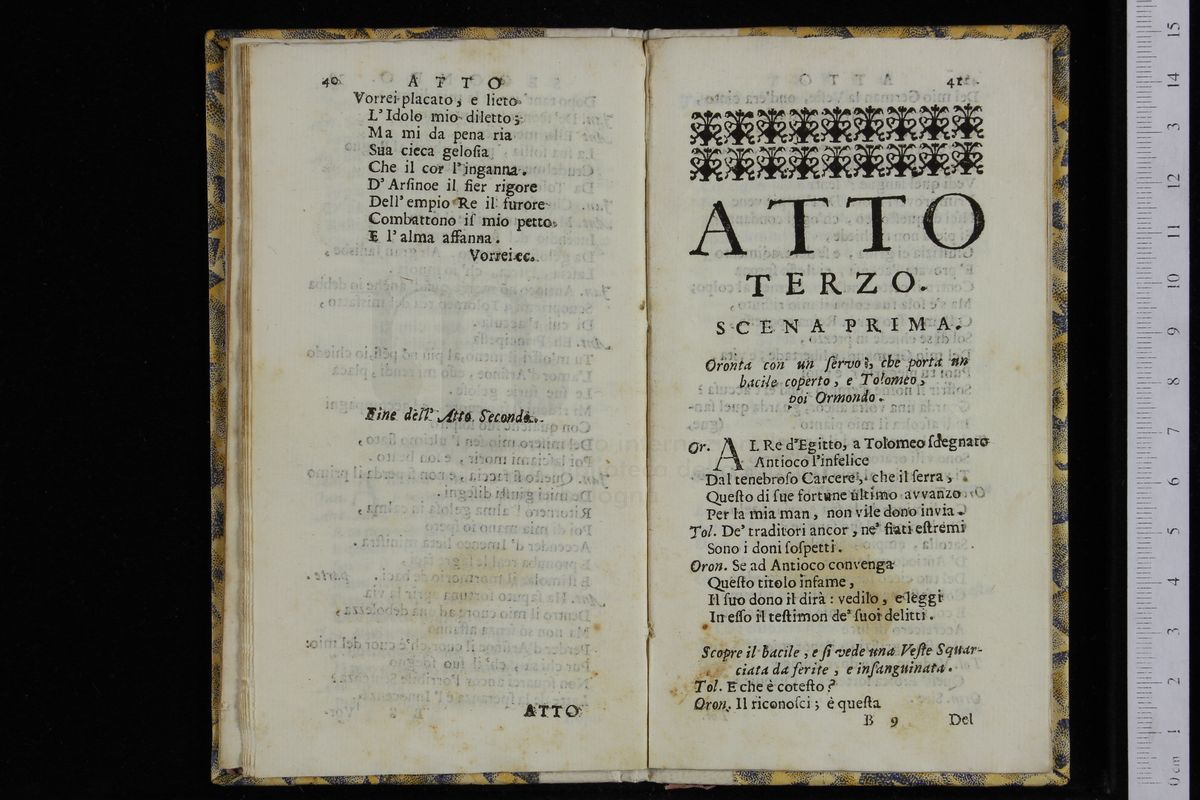 40 ATTO
Vorrei placato, e lieto
L'Idolo mio diletto;
Ma mi da pena ria
Sua cieca gelosia
Che il cor l'inganna.
D'Arsinoe il fier rigore
Dell'empio Re il furore
Combattono il mio petto
E l'alma affanna.
Vorrei ec.
Fine dell' Atto Secondo.
ATTO
41
ATTO
TERZO.
SCENA PRIMA.
Oronta con un servo, che porta un
bacile coperto, e Tolomeo,
poi Ormondo.
Or. AL Re d'Egitto, a Tolomeo sdegnato
Antioco l'infelice
Dal tenebroso Carcere, che il serra,
Questo di sue fortune ultimo avvanzo
Per la mia man, non vile dono invia.
Tol. De' traditori ancor, ne' fiati estremi
Sono i doni sospetti.
Oron. Se ad Antioco convenga
Questo titolo infame,
Il suo dono il dirà: vedilo, e leggi
In esso il testimon de' suoi delitti.
Scopre il bacile, e si vede una Veste Squar-
ciata da ferite, e insanguinata.
Tol. E che è cotesto?
Oron. Il riconosci; è questa
B 9 Del